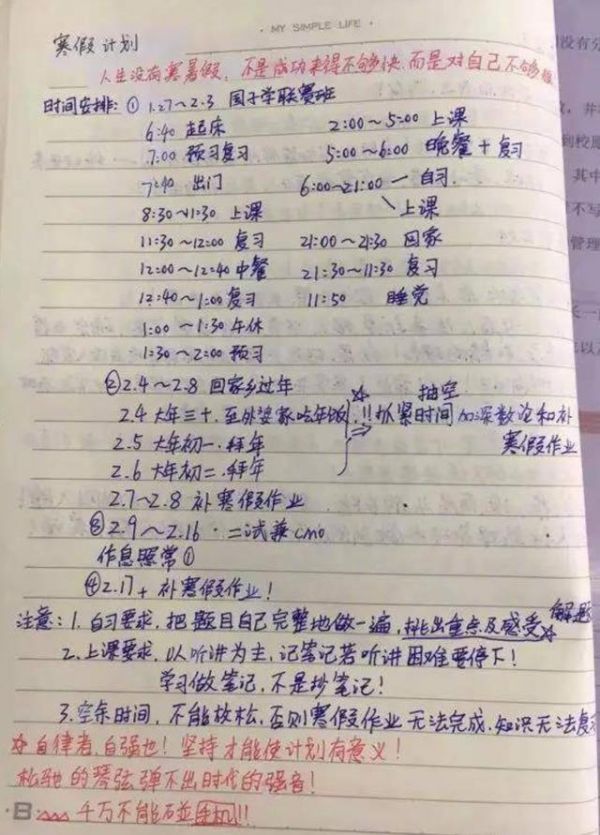 · MY SIMPLE LIFE ·
寒假计划
人生没有寒暑假,不是成功来得不够快,而是对自己不够狠
时间安排:① 1.27~2.3 国子学联赛班
6:40 起床 2:00~5:00 上课
7:00 预习复习 5:00~6:00 晚餐+复习
7:40 出门 6:00~21:00 一自习.
8:30~11:30 上课 上课
11:30~12:00 复习 21:00~21:30 回家
12:00~12:40 中餐 21:30~11:30 复习
12:40~1:00 复习 11:50 睡觉
1:00~1:30 午休
1:30~2:00 预习
②2.4~2.8 回家乡过年
2.4 大年三十.至外婆家吃年饭 抽空
!!抓紧时间加深数论和补
2.5 大年初一.拜年 寒假作业
2.6 大年初二.拜年
2.7~2.8 补寒假作业
③2.9~2.16 · 二试兼cmo
作息照常①
④2.17+ 补寒假作业!
注意:1.自习要求,把题目自己完整地做一遍,挑出重点及感受☆ 解题
2.上课要求,以听讲为主,记笔记若听讲困难要停下!
学习做笔记,不是抄笔记!
3.空余时间,不能放松,否则寒假作业无法完成,知识无法复习
☆自律者,自强也!坚持才能使计划有意义!
松驰的琴弦弹不出时代的强音!
·B: 千万不能碰手机!!
没有分
到校
其中
不写
管理